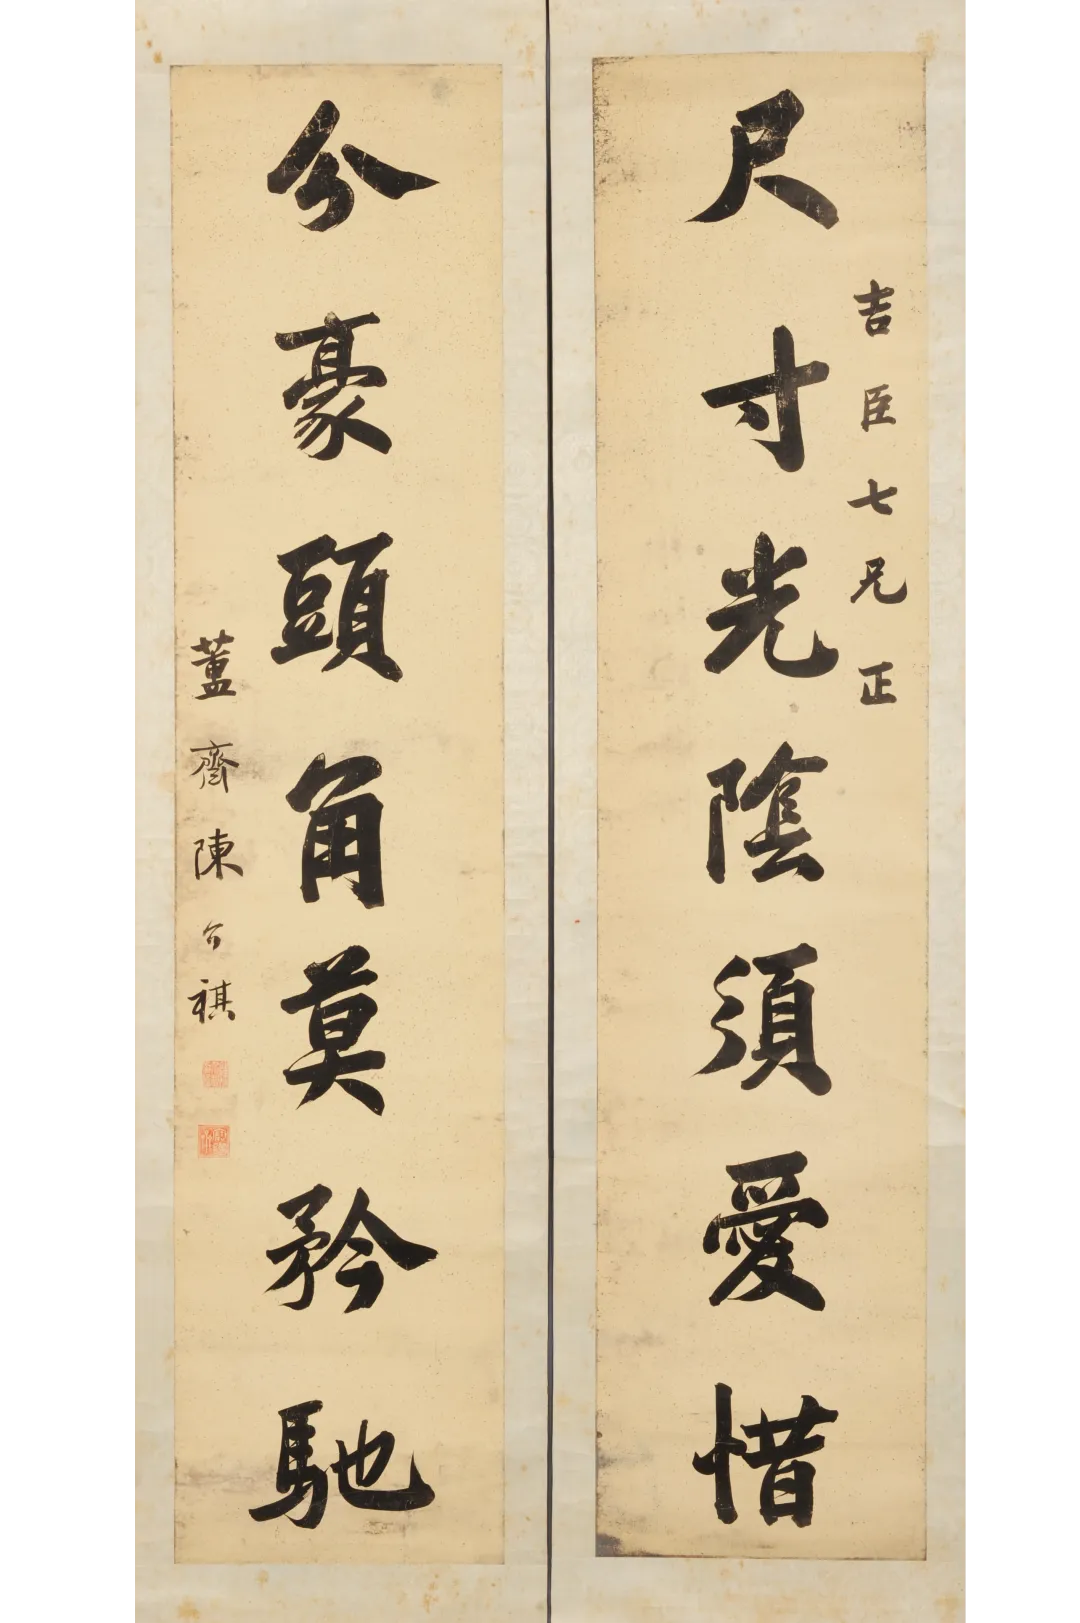 吉臣七兄正
尺寸光陰須愛惜
分豪頭角莫矜馳
藎齋陳介祺